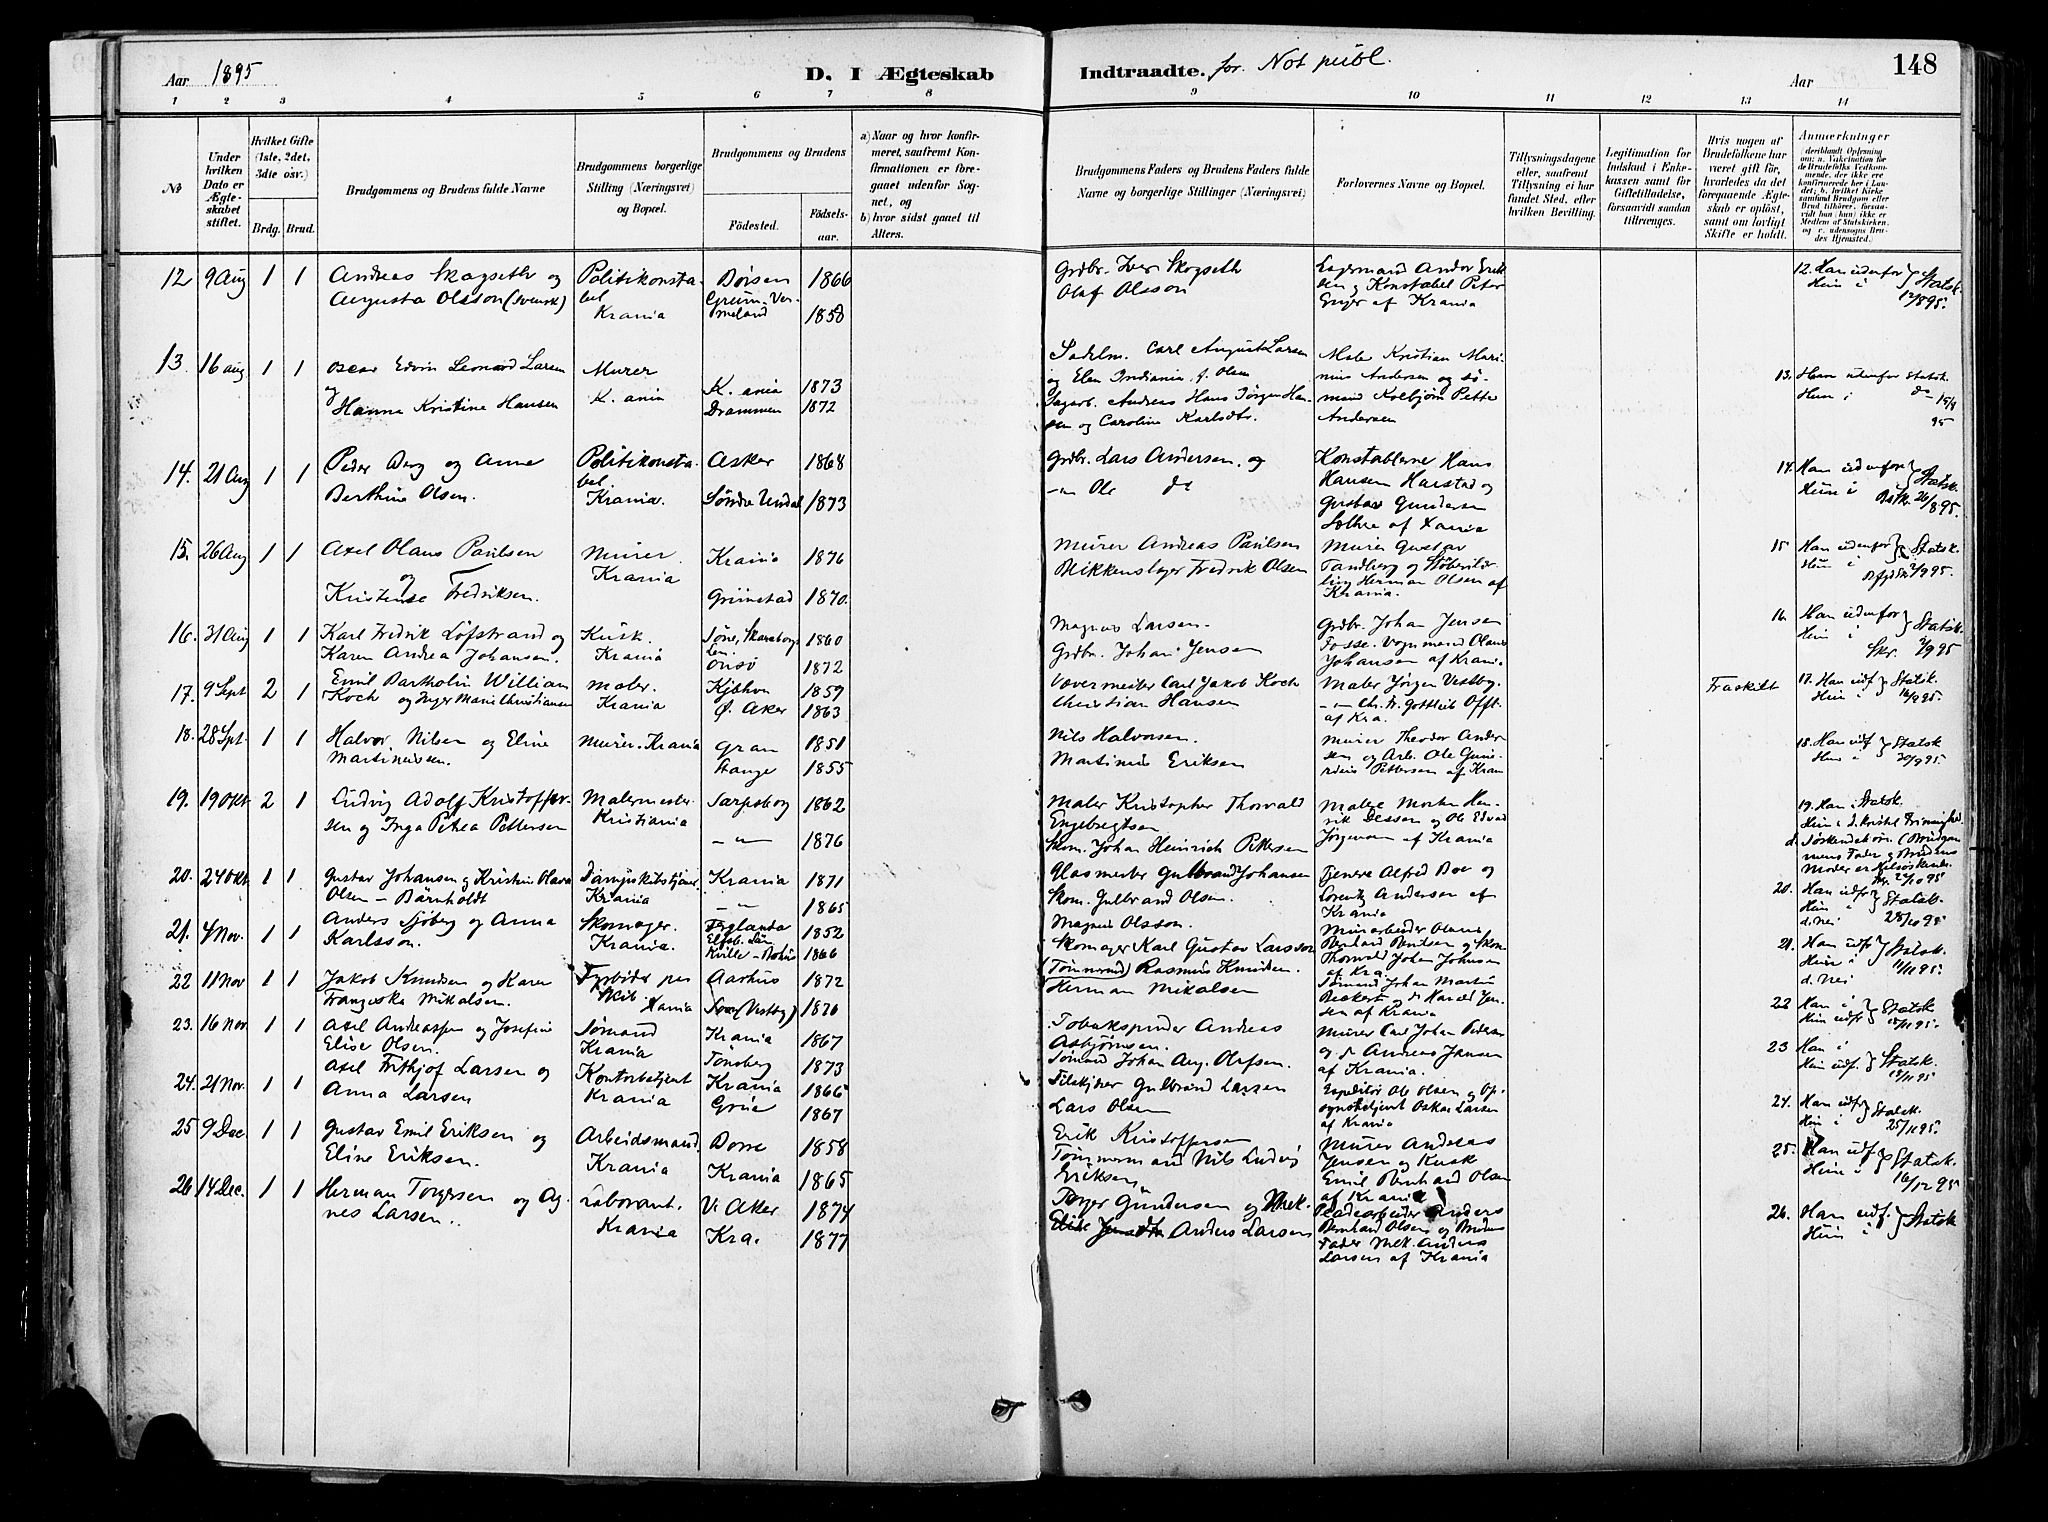 Aar 1895
D. I Ægteskab Indtraadte. for Not publ.
Aar
148
1 2 3 4 5 6 7 8 9 10 11 12 13 14
No
Under hvilken Dato er Ægteskabet stiftet.
Hvilket Gifte (1ste, 2det, 3die osv.)
Brdg. Brud.
Brudgommens og Brudens fulde Navne
Brudgommens borgerlige Stilling (Næringsvei) og Bopæl.
Brudgommens og Brudens
Fødested. Fødselsaar.
a) Naar og hvor konfirmeret, saafremt Konfirmationen er foregaaet udenfor Sognet, og
b) hvor sidst gaaet til Alters.
Brudgommens Faders og Brudens Faders fulde Navne og borgerlige Stillinger (Næringsvei)
Forlovernes Navne og Bopæl.
Tillysningsdagene eller, saafremt Tillysning ei har fundet Sted, efter hvilken Bevilling.
Legitimation for Indskud i Enkekassen samt for Giftetilladelse, forsaavidt saadan tiltrænges.
Hvis nogen af Brudefolkene har været gift før, hvorledes da det foregaaende Ægteskab er opløst, samt om lovligt Skifte er holdt.
Anmerkninger
12 9 Aug 1 1 Andreas Skogseth og Augusta Olsson (Svensk) Politikonstabel Krania Børsen 1866 Grum Vermeland 1858 Grdbr. Iver Skogseth Olaf Olsson Konstabel Peter Enger af Krania 12. Han udenfor Hun i Statsk. 12/8 95.
13. 16 Aug 1 1 Oscar Edvin Leonard Larsen og Hanna Kristine Hansen Murer K.ania K.ania 1873 Drammen 1872 Sadelm. Carl August Larsen og Elen Indiania f. Olsen Andreas Hans Jørgen Hansen og Caroline Karlsdtr. Maler Kristian Marinius Andersen og Sømand Kolbjørn Petter Andersen 13. Han udenfor Statsk. Hun i do 95
14. 21 Aug 1 1 Peder Berg og Anne Berthine Olsen. Politikonstabel. Krania. Asker 1868 Søndre Undal 1873 Grdbr. Lars Andersen, og Ole do Konstablerne Hans Hansen Harstad og Gustav Gundersen Sæthre af Xania 14. Han udenfor Hun i Statsk. 26/8 95.
15. 26 Aug 1 1 Axel Olaus Paulsen og Kristense Fredriksen. Murer Krania Krania 1876 Grimstad 1870. Murer Andreas Paulsen Blikkenslager Fredrik Olsen Murer Gustav Tandberg og Herman Olsen af Krania. 15 Han udenfor Hun i Statsk. 2/9 95.
16. 31 Aug 1 1 Karl Fredrik Løfstrand og Karen Andrea Johansen. Kusk. Krania Skaraborgs Len. 1860 Onsø 1872 Magnus Larsen. Grdbr. Johan Jensen Grdbr. Johan Jensen Fosse. Vognmand Olaus Johansen af Krania 16. Han udenfor Hun i Statsk. Skr. 7/9 95
17. 9 Sept 2 1 Emil Bartholin William Koch og Inger Marie Christiansen Maler. Krania Kjbhvn 1859 Ø. Aker 1863 Vævermester Carl Jakob Koch Christian Hansen Maler Jørgen Vestby. Chr. Fr. Gottlieb Offt af Kra. Fraskilt 17. Han udf Hun i Statsk. 16/9 95.
18. 28 Spt. 1 1 Halvor Nilsen og Eline Martiniusen. Murer. Krania Gran 1851 Stange 1855 Nils Halvorsen. Martinus Eriksen Murer Theodor Andersen og Arb. Ole Pettersen af Kran 18. Han udf Hun i Statsk 30/9 95.
19. 19 Okt 2 1 Ludvig Adolf Kristoffersen og Inga Petrea Pettersen Malermester Kristiania Sarpsborg 1862 1876 Maler Kristopher Thorvald Engebregtsen Skom. Johan Heinrich Pettersen Malere Morten Henrik Dessen og Ole Edvard Jørgensen af Krania 19. Han i Statsk. Hun i d. kristel. Frimenighed. d. Søskendebørn (Brudgommens Fader og Brudens Moder er Helsøskende
20. 24 Okt 1 1 Gustav Johansen og Kristine Olava Olsen - Bärnholdt Krania Krania 1871 1865 Glasmester Gulbrand Johansen Skom. Gulbrand Olsen. Tjenere Alfred Boe og Lorentz Andersen af Krania 20. Han udf. Hun i Statsk. 28/10 95. d. Nei
21. 4 Nov. 1 1 Anders Sjøberg og Anna Karlsson. Skomager. Krania. Færglanda Elfsb. Län 1852 Kville - Bohus 1866 Magnus Olsson. Skomager Karl Gustav Larsson Murarbeider Olaus Bernhard Berntsen og Skom Thorvald Johan Johnsen af Kra. 21. Han udf Hun i Statsk. 11/11 95. d. Nei
22 11 Nov 1 1 Jakob Knudsen og Karen Franziska Mikalsen. Fyrbøder paa Skib Xania Aarhus 1872 (Vestby) 1870 (Tømmermd) Rasmus Knudsen. Herman Mikalsen Sømand Johan Martin og do Harald Jensen af Krania 22 Han i Hun udf Statsk 18/11 95.
23. 16 Nov. 1 1 Axel Andreassen og Josefine Elise Olsen. Sømand Krania Krania 1867 Tønsberg 1873 Tobakspinder Andreas Asbjørnsen. Sømand Johan Aug. Olsen. Murer Carl Johan Pedersen og do Andreas Jansen af Krania. 23 Han i Hun udf. Statsk. 18/11 95.
24. 21 Nov. 1 1 Axel Frithjof Larsen og Anna Larsen Kontorbetjent Krania Krania 1866 Grue 1867 Tilskjærer Gulbrand Larsen Lars Olsen Expeditør Ole Olsen og Opsynsbetjent Oskar Larsen af Krania 24. Han udf Hun i Statsk. 25/11 95.
25 9 Dec 1 1 Gustav Emil Eriksen og Eline Eriksen. Arbeidsmand. Krania Dovre 1858 Krania 1865 Erik Kristoffersen Tømmermand Nils Ludvig Eriksen Murer Andreas Jensen og Kusk Emil Bernhard Olsen af Krania 25. Han udf. Hun i Statsk. 16/12 95
26 14 Dec. 1 1 Herman Torgersen og Agnes Larsen. Laborant. Krania V. Aker 1874 Kra. 1877 Torger Gundersen og Mek. Anders Larsen Pladearbeider Anders Bernhard Olsen og Brudens Fader Mek. Anders Larsen af Krania 26. Han udf. Hun i Statsk